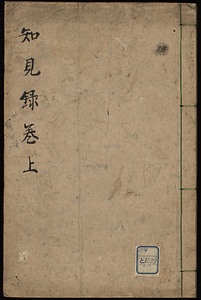 知見録巻上